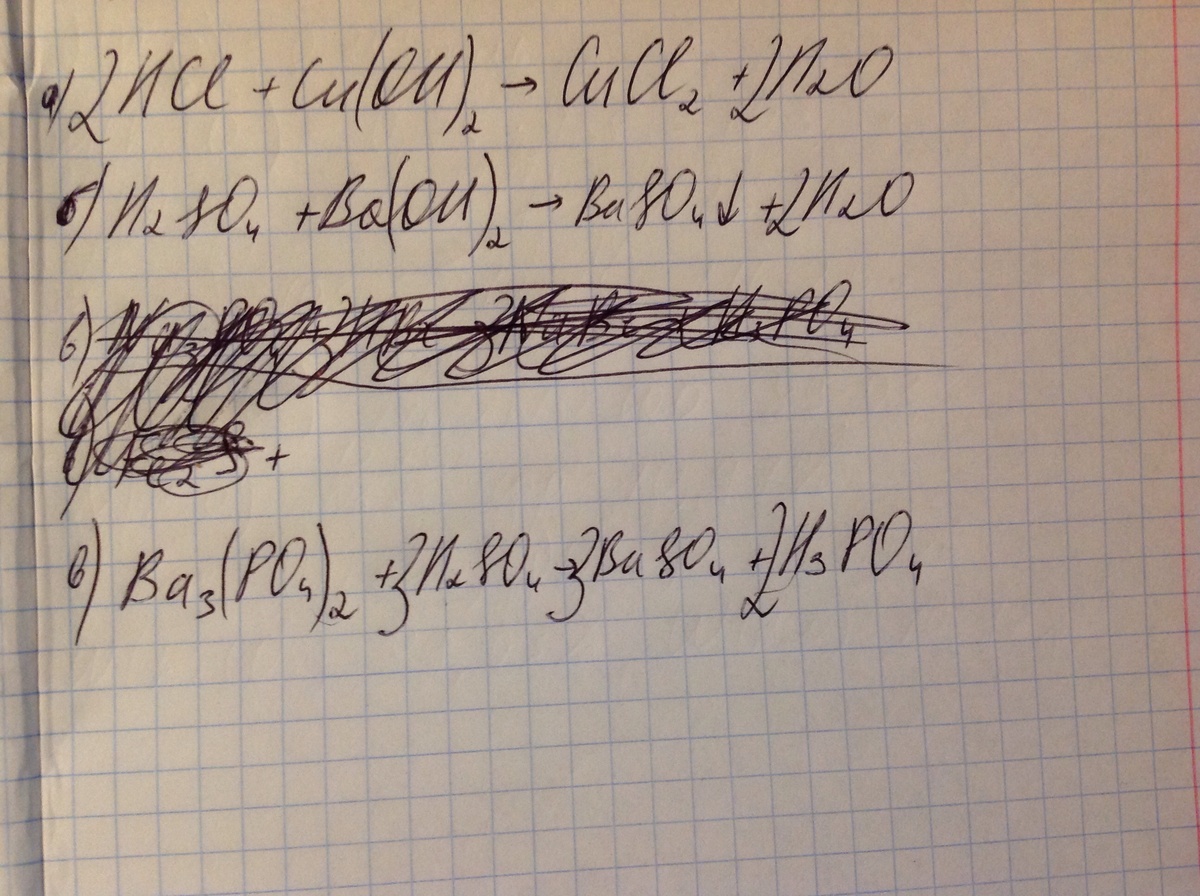 а) 2HCl + Cu(OH)₂ → CuCl₂ + 2H₂O
б) H₂SO₄ + Ba(OH)₂ → BaSO₄↓ + 2H₂O
в)
+
в) Ba₃(PO₄)₂ + 3H₂SO₄ → 3BaSO₄ + 2H₃PO₄